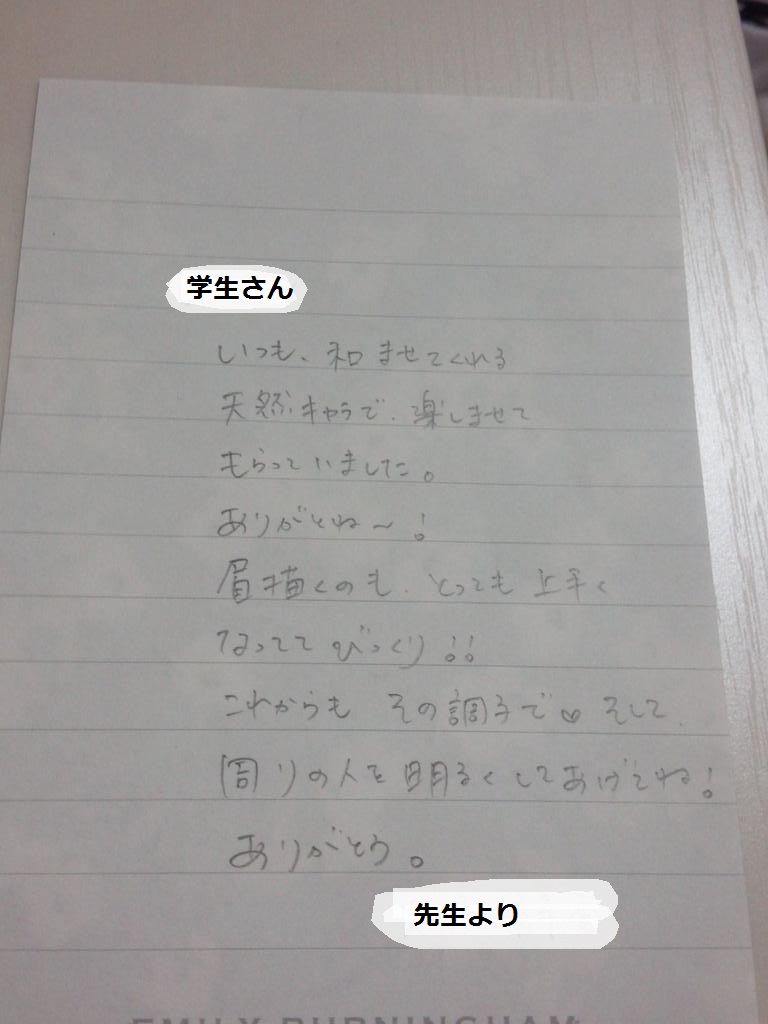 学生さん
いつも、和ませてくれる
天然キャラで、楽しませて
もらっていました。
ありがとね〜!
眉描くのも、とっても上手く
なっててびっくり!!
これからも その調子で♡ そして、
周りの人を明るくしてあげてね!
ありがとう。
先生より
EMILY BURNINGHAM